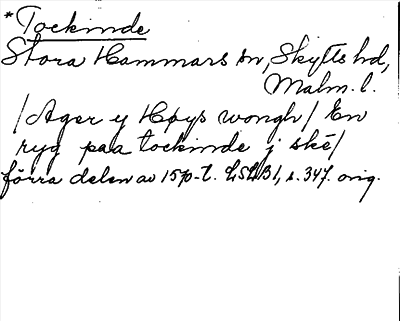 *Tockinde
Stora Hammars sn, Skytts hd,
Malm. l.
/Ager y Høys wongh/ En
ryg paa tockinde j ské/
förra delen av 1570-t. LSLB1, s. 347. orig.